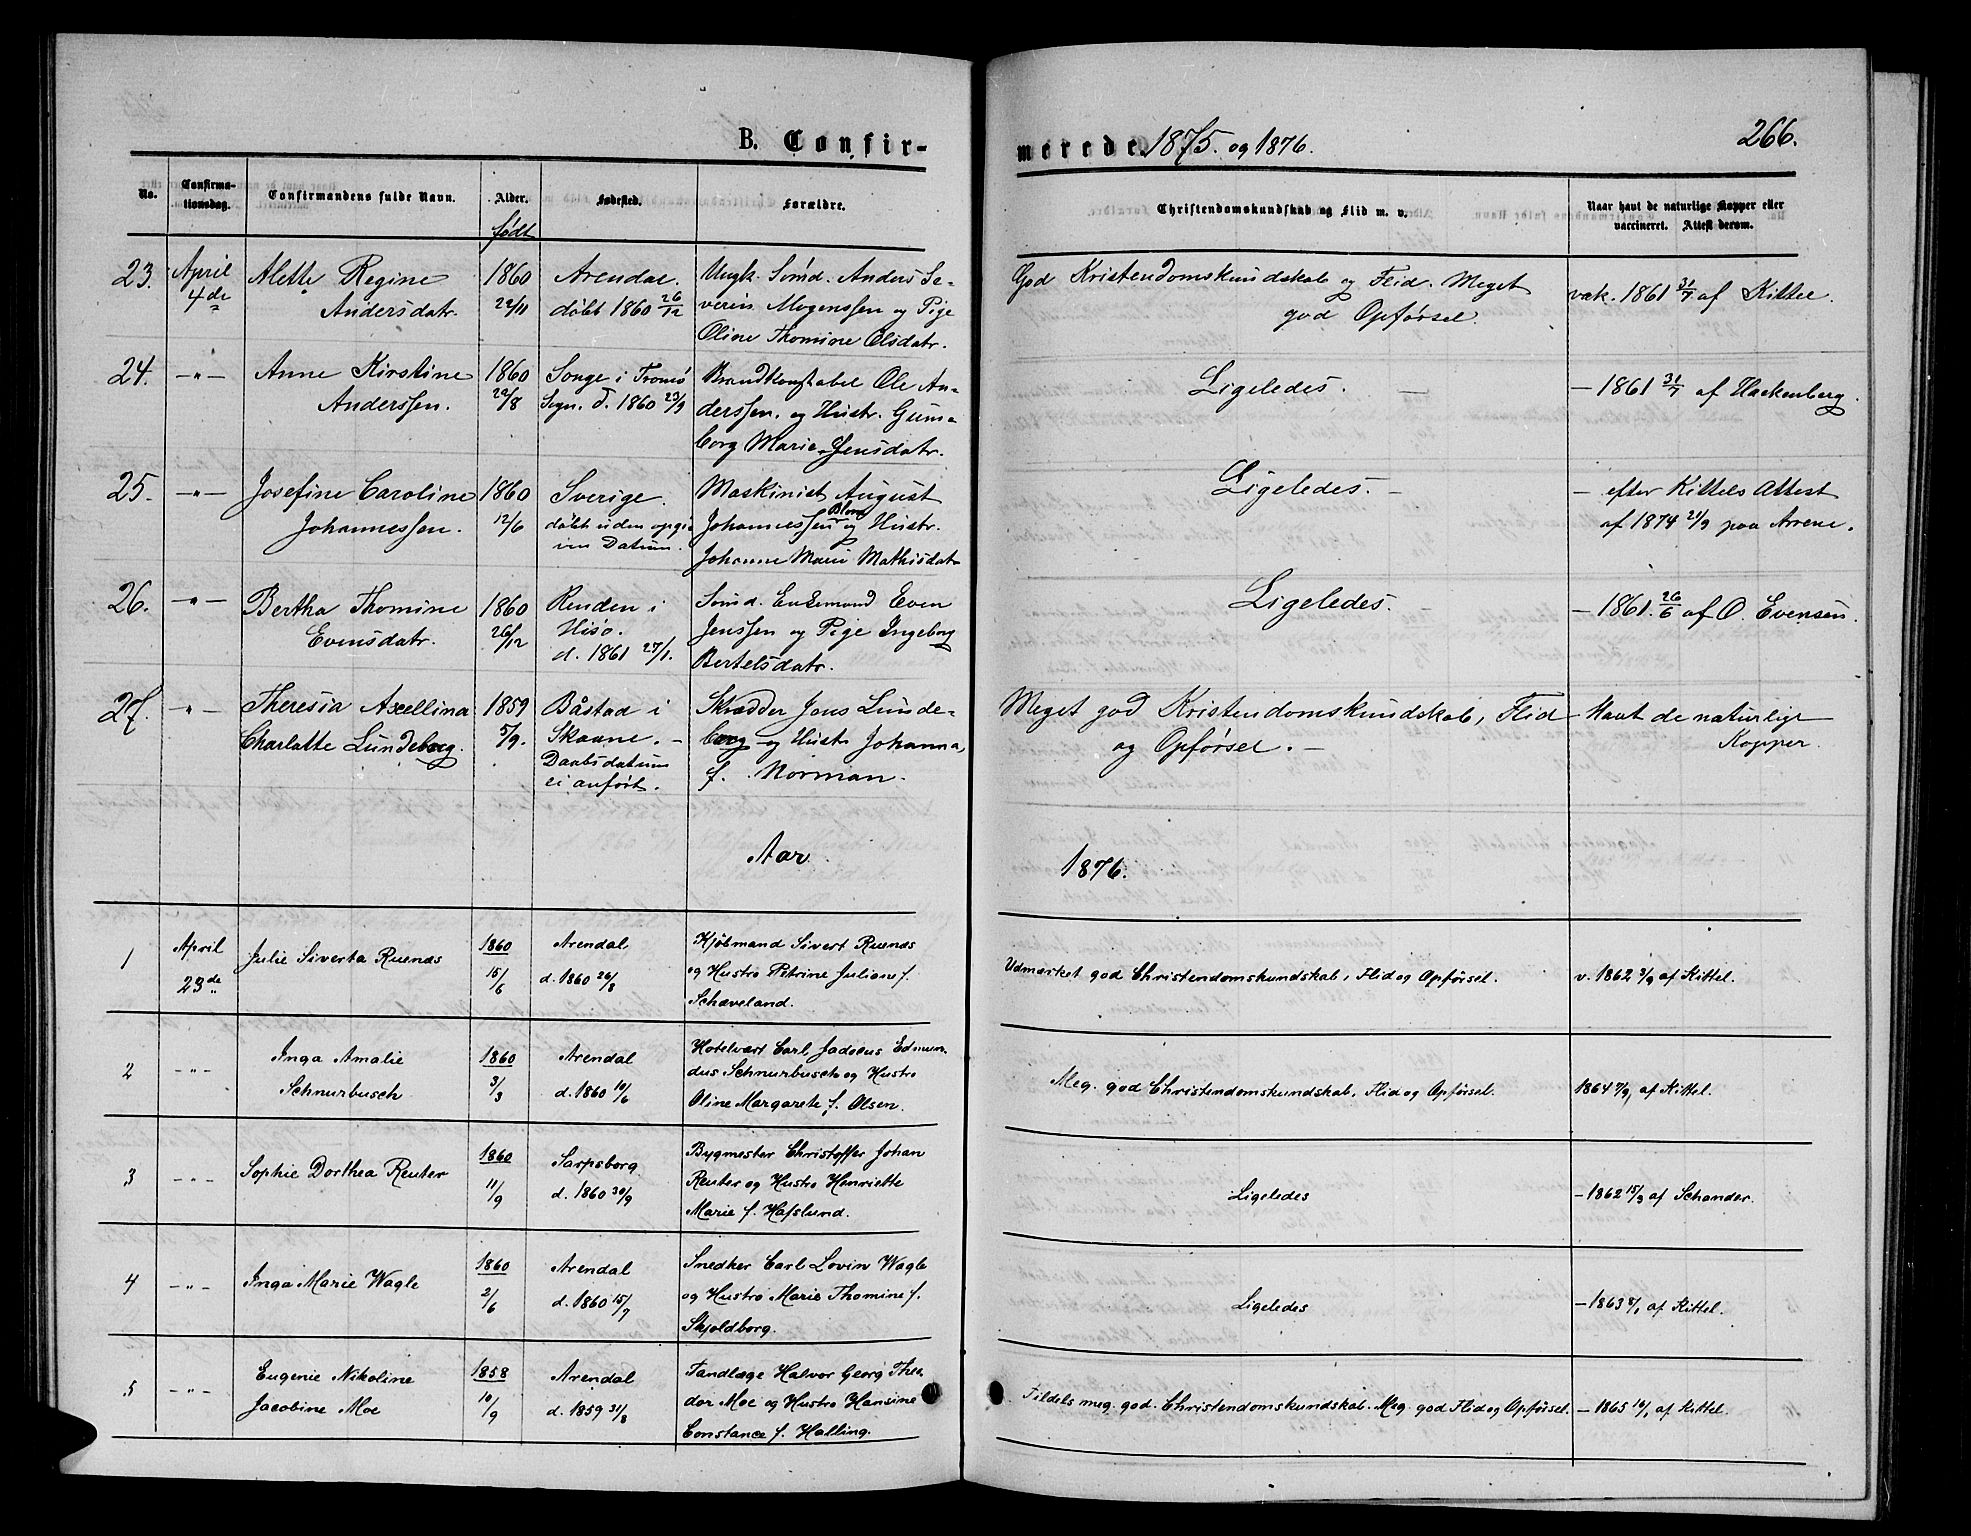 B. Confir-
merede. 1875. og 1876.
266.
No.
Confirma-
tionsdag.
Confirmandens fulde Navn.
Alder.
født
Fødested.
Forældre.
Christendomskundskab og Flid m. v.
Naar havt de naturlige Kopper eller
vaccineret. Attest derom.
23. April Alette Regine 1860 Arendal. Ungk. Sømd. Anders Se-
4de Andersdatr. 22/11 døbt 1860 26/12 verin Mogenssen og Pige
Oline Thomine Olsdatr.
God Kristendomskundskab og Flid. Meget
god Opførsel.
vak. 1861 31/7 af Kittel.
24. — " — Anne Kirstine 1860 Songe i Tromø Brandkonstabel Ole An-
Anderssen. 22/8 Sogn. d. 1860 23/9 derssen. og Hustr. Gune-
borg Marie Jensdatr.
Ligeledes. —
— 1861 31/7 af Hackenberg.
25. — " — Josefine Caroline 1860 Sverige. Maskinist August
Johannessen. 12/6 døbt uden opgi- Johannessen Blom og Hustr.
ven Datum. Johanne Marie Mathisdatr.
Ligeledes. —
— efter Kittels Attest
af 1874 21/9 paa Arrene.
26. — " — Bertha Thomine 1860 Renden i Sømd. Enkemand Even
Evensdatr. 26/12 Hisø. Jenssen og Pige Ingeborg
d. 1861 27/1. Bertelsdatr.
Ligeledes. —
— 1861. 26/6 af O. Evensen.
27. — " — Theresia Axellina 1859 Båstad i Skrædder Jons Lunde-
Charlotte Lundeberg. 5/9. Skaane. — berg og Hustr. Johanna,
Daabsdatum f. Norman.
ei anført.
Meget god Kristendomskundskab, Flid
og Opførsel. —
Havt de naturlige
Kopper.
Aar 1876.
1 April Julie Siverta Ruenæs 1860 Arendal Kjøbmand Sivert Ruenæs
23de 15/6 d. 1860 26/8 og Hustro Petrine Juliane f.
Schæveland.
Udmærket god Christendomskundskab, Flid og Opførsel.
v. 1862 3/9 af Kittel.
2 — " — Inga Amalie 1860 Arendal Hotelvært Carl Edmun-
Schnurbusch 3/3 d. 1860 10/6 dus Schnurbusch og Hustro
Oline Margarete f. Olsen.
Meg. god Christendomskundskab, Flid og Opførsel.
1864 7/9, af Kittel.
3 — " — Sophie Dorthea Reuter 1860 Sarpsborg Bygmester Christoffer Johan
11/9 d. 1860 30/9 Reuter og Hustro Henriette
Marie f. Hafslund.
Ligeledes
— 1862 15/3 af Schander.
4 — " — Inga Marie Wagle 1860 Arendal Snedker Carl Lovin Wagle
2/6 d. 1860 15/7 og Hustro Marie Thomine f.
Skjoldborg.
Ligeledes
— 1863 8/1 af Kittel.
5 — " — Eugenie Nikoline 1858 Arendal Tandlæge Halvor Georg Theo-
Jacobine Moe 10/9 d. 1859 31/8 dor Moe og Hustro Hansine
Constance f. Halling.
Tildels meg. god. Christendomskundskab. Meg. god Flid og Opførsel.
— 1865 10/1 af Kittel.